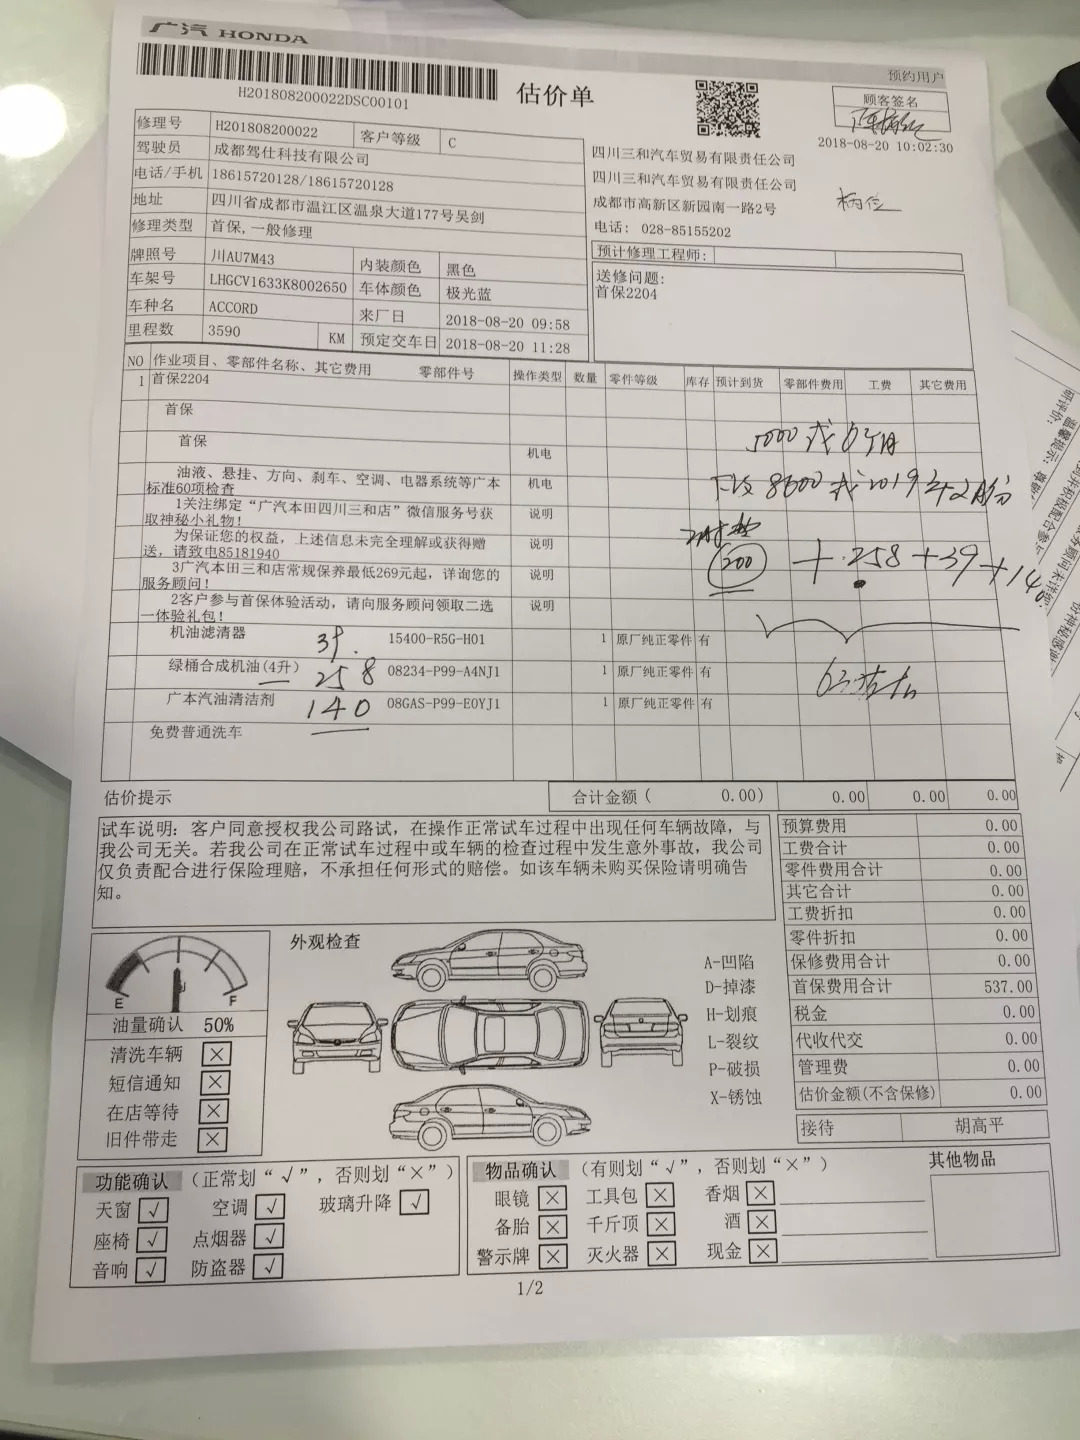 广汽 HONDA
预约用户
H201808200022DSC00101
估价单
顾客签名
2018-08-20 10:02:30
修理号 H201808200022 客户等级 C
驾驶员 成都驾仕科技有限公司
电话/手机 18615720128/18615720128
地址 四川省成都市温江区温泉大道177号吴剑
修理类型 首保,一般修理
四川三和汽车贸易有限责任公司
四川三和汽车贸易有限责任公司
成都市高新区新园南一路2号
电话: 028-85155202
牌照号 川AU7M43 内装颜色 黑色
车架号 LHGCV1633K8002650 车体颜色 极光蓝
车种名 ACCORD 来厂日 2018-08-20 09:58
里程数 3590 KM 预定交车日 2018-08-20 11:28
预计修理工程师:
送修问题:
首保2204
NO 作业项目、零部件名称、其它费用 零部件号 操作类型 数量 零件等级 库存 预计到货 零部件费用 工费 其它费用
1 首保2204
首保
首保 机电
5000或6个月
油液、悬挂、方向、刹车、空调、电器系统等广本 机电
标准60项检查
下次8600或2019年2月份
1关注绑定“广汽本田四川三和店”微信服务号获 说明
取神秘小礼物!
为保证您的权益,上述信息未完全理解或获得赠 说明
送,请致电85181940
200 + 258 + 39 + 140
3广汽本田三和店常规保养最低269元起,详询您的 说明
服务顾问!
2客户参与首保体验活动,请向服务顾问领取二选 说明
一体验礼包!
机油滤清器 39. 15400-R5G-H01 1 原厂纯正零件 有
绿桶合成机油(4升) 258 08234-P99-A4NJ1 1 原厂纯正零件 有
广本汽油清洁剂 140 08GAS-P99-E0YJ1 1 原厂纯正零件 有
免费普通洗车
估价提示 合计金额( 0.00) 0.00 0.00 0.00
试车说明: 客户同意授权我公司路试,在操作正常试车过程中出现任何车辆故障,与
我公司无关。若我公司在正常试车过程中或车辆的检查过程中发生意外事故,我公司
仅负责配合进行保险理赔,不承担任何形式的赔偿。如该车辆未购买保险请明确告
知。
预算费用 0.00
工费合计 0.00
零件费用合计 0.00
其它合计 0.00
工费折扣 0.00
零件折扣 0.00
保修费用合计 0.00
首保费用合计 537.00
税金 0.00
代收代交 0.00
管理费 0.00
估价金额(不含保修) 0.00
接待 胡高平
E F
油量确认 50%
清洗车辆 ×
短信通知 ×
在店等待 ×
旧件带走 ×
外观检查
A-凹陷
D-掉漆
H-划痕
L-裂纹
P-破损
X-锈蚀
功能确认 (正常划“√”,否则划“×”)
天窗 √ 空调 √ 玻璃升降 √
座椅 √ 点烟器 √
音响 √ 防盗器 √
物品确认 (有则划“√”,否则划“×”) 其他物品
眼镜 × 工具包 × 香烟 ×
备胎 × 千斤顶 × 酒 ×
警示牌 × 灭火器 × 现金 ×
1/2